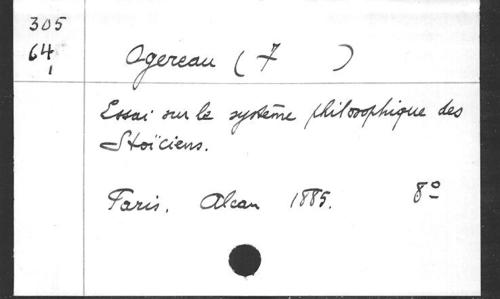 305
64
1
Ogereau (F )
Essai sur le système philosophique des
Stoïciens.
Paris. Alcan 1885. 8º